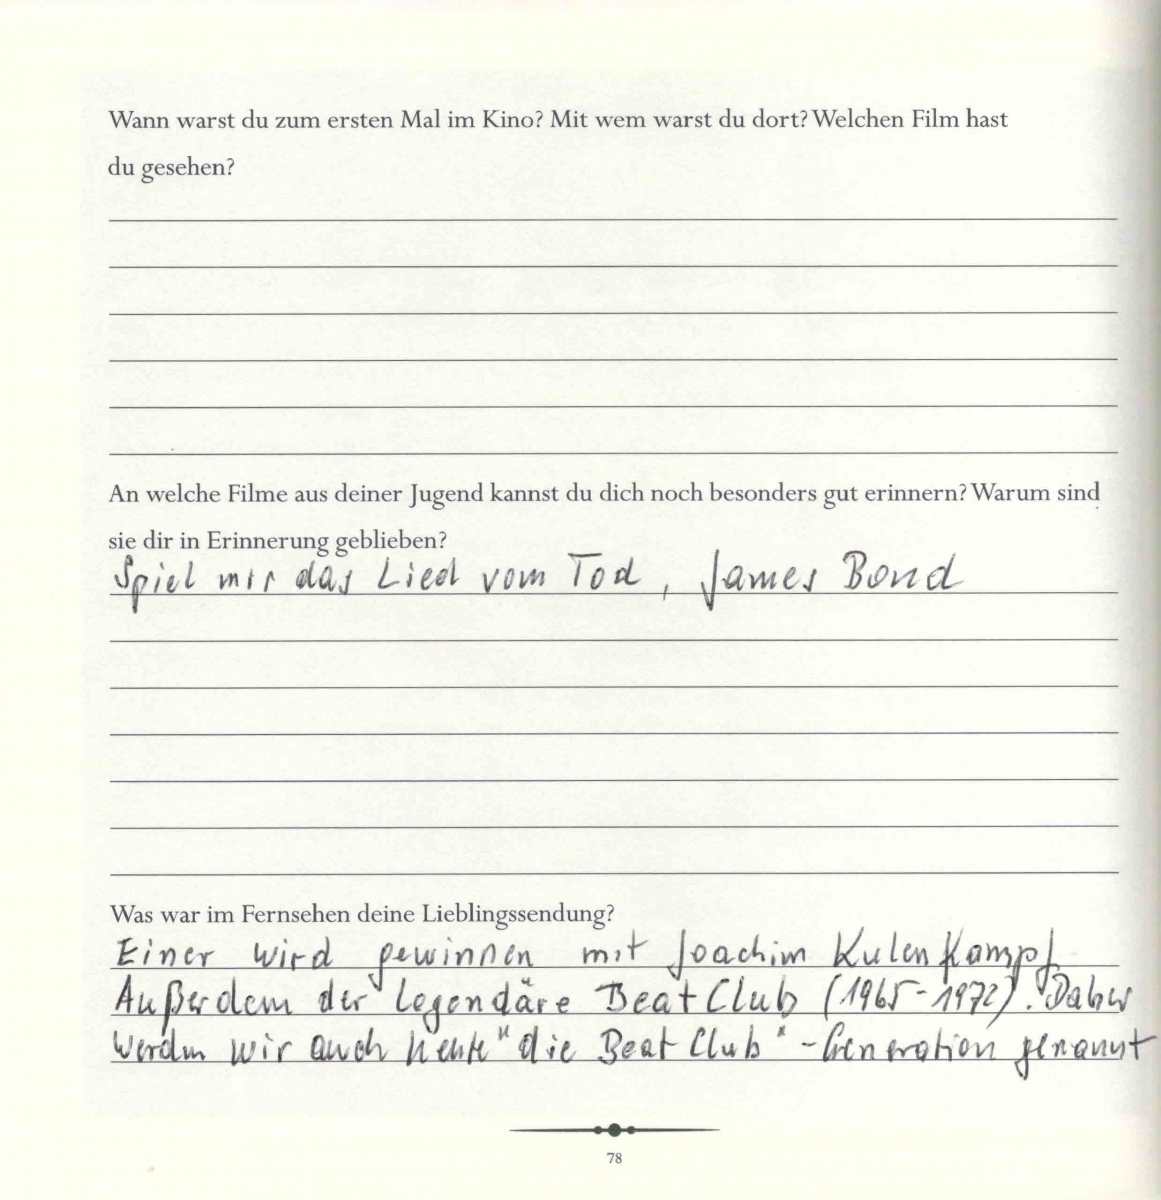 Wann warst du zum ersten Mal im Kino? Mit wem warst du dort? Welchen Film hast
du gesehen?
An welche Filme aus deiner Jugend kannst du dich noch besonders gut erinnern? Warum sind
sie dir in Erinnerung geblieben?
Spiel mir das Lied vom Tod, James Bond
Was war im Fernsehen deine Lieblingssendung?
Einer wird gewinnen mit Joachim Kulenkampf
Außerdem der legendäre Beat Club (1965-1972). Daher
werden wir auch heute "die Beat Club"-Generation genannt
78